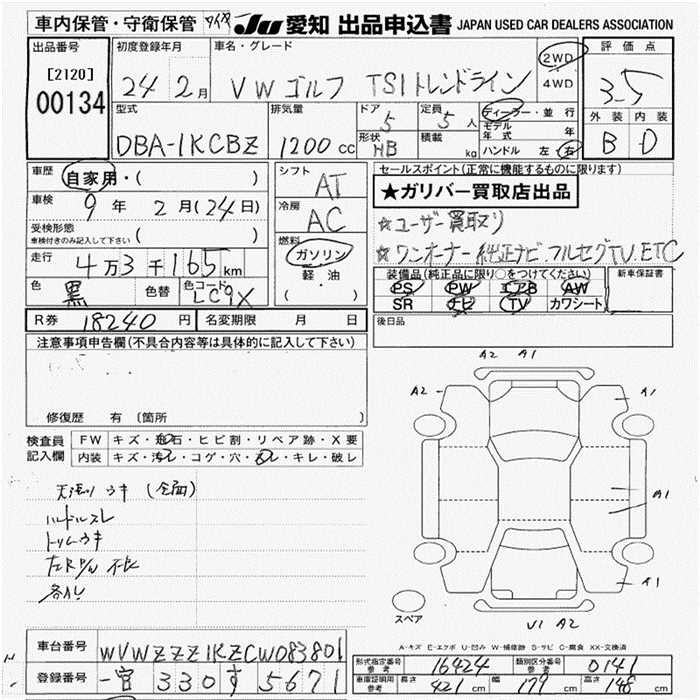 車内保管・守衛保管 タイヤ JU 愛知 出品申込書 JAPAN USED CAR DEALERS ASSOCIATION
出品番号 初度登録年月 車名・グレード 2WD 評価点
[2120] 24 2月 VW ゴルフ TSIトレンドライン 4WD 3.5
00134 型式 排気量 ドア 5 定員 5人 ディーラー・並行 外装 内装
DBA-1KCBZ 1200cc 形状 HB 積載 kg モデル年式 年 B D
ハンドル 左・右
車歴 自家用・( ) シフト AT セールスポイント(正常に機能するものに限ります)
車検 9年 2月(24日) 冷房 AC ★ガリバー買取店出品
受検形態 ( ) ☆ユーザー買取り
車検付きのみ記入して下さい 燃料 ガソリン ☆ワンオーナー 純正ナビ.フルセグTV.ETC
走行 4万3千165km 軽・油 装備品(純正品に限り○をつけてください) 新車保証書
色 黒 色替 色コード LC9X ( ) PS PW エアB AW
SR ナビ TV カワシート
R券 18240円 名変期限 月 日 後日品
注意事項申告欄(不具合内容等は具体的に記入して下さい)
A2 A1
A2 A1
修復歴 有 〔箇所 〕
検査員 FW キズ・飛石・ヒビ割・リペア跡・X要
記入欄 内装 キズ・汚レ・コゲ・穴・スレ・キレ・破レ
天張りウキ (全面)
A1
ハンドルスレ
トリムウキ
左R P/W 不良
A1
各AU
スペア U1 A2
A-キズ E-エクボ U-凹み W-補修跡 S-サビ C-腐食 XX-交換済
車台番号 WVWZZZ1KZCW083801
形式指定番号 参考 16424 類別区分番号 参考 0141
登録番号 一宮 330 す 5671
車庫証明用 参考 長さ 421cm 幅 179cm 高さ 148cm